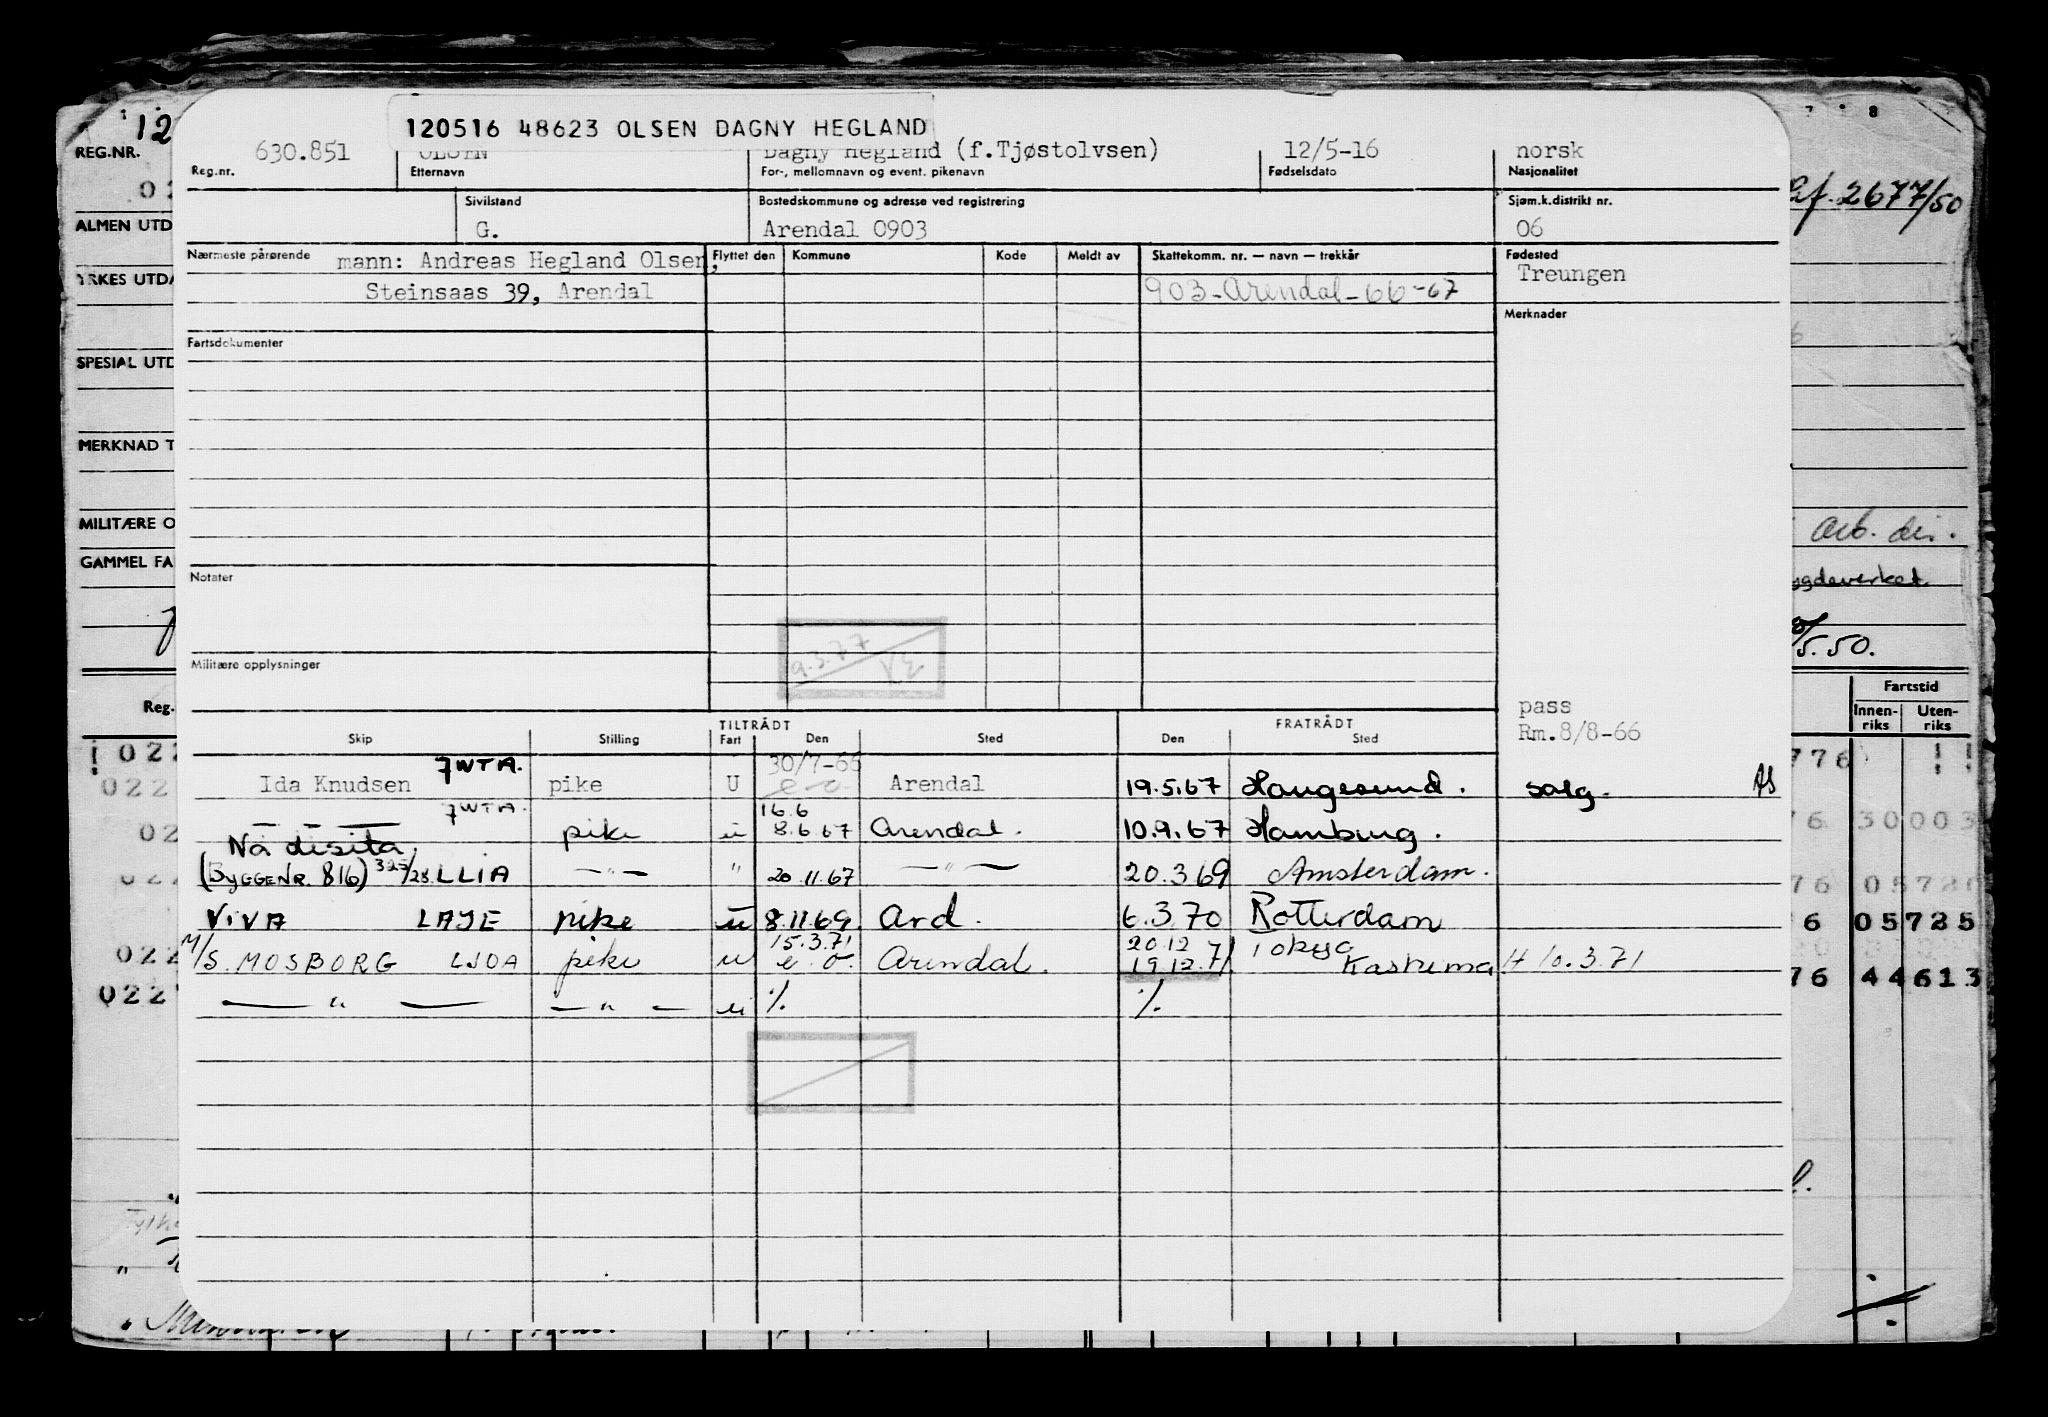 120516 48623 OLSEN DAGNY HEGLAND
630.851 OLSEN Dagny Hegland (f.Tjøstolvsen) 12/5-16 norsk
Reg.nr. Etternavn For-, mellomnavn og event. pikenavn Fødselsdato Nasjonalitet
Sivilstand Bostedskommune og adresse ved registrering Sjøm.k.distrikt nr.
G. Arendal 0903 06
Nærmeste pårørende mann: Andreas Hegland Olsen, Flyttet den Kommune Kode Meldt av Skattekomm. nr. — navn — trekkår Fødested
Treungen
Steinsaas 39, Arendal 903-Arendal-66-67
Merknader
Fartsdokumenter
Notater
9.3.77
Militære opplysninger
pass
Rm.8/8-66
TILTRÅDT FRATRÅDT
Skip Stilling Fart Den Sted Den Sted
Ida Knudsen JWTA. pike U 30/7-66 Arendal 19.5.67 Haugesund. salg. AS
— " — JWTA. pike u 16.6 8.6.67 Arendal. 10.9.67 Hamburg.
Nadisita.
(Byggenr. 816) 325/28. LLIA — " — " 20.11.67 — " — 20.3.69 Amsterdam.
VIVA LAJE pike u 8.11.69 Ard. 6.3.70 Rotterdam
M/S. MOSBORG LJOA pike u 15.3.71 e.o. Arendal. 20.12 19.12.71. Tokyo Kashima H 10.3.71
— " — — " — u ·/. ·/.
12
REG.NR.
02
ALMEN UTD
YRKES UTDA
SPESIAL UTD
MERKNAD T
MILITÆRE O
GAMMEL FA
Reg.
022
022
02
022
022
7 8
2677/50
Arb. dir.
ygdeverket
5.50.
Fartstid
Innen-riks Uten-riks
776
76 30003
76 05725
6 05725
76 44613